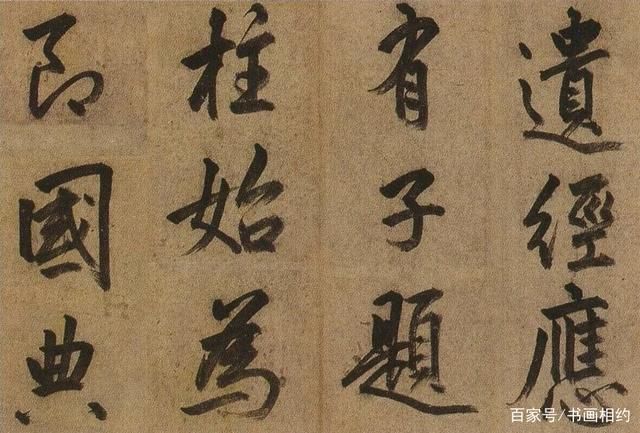 遺經應
有子題
柱始為
郎國典
百家号/书画相约